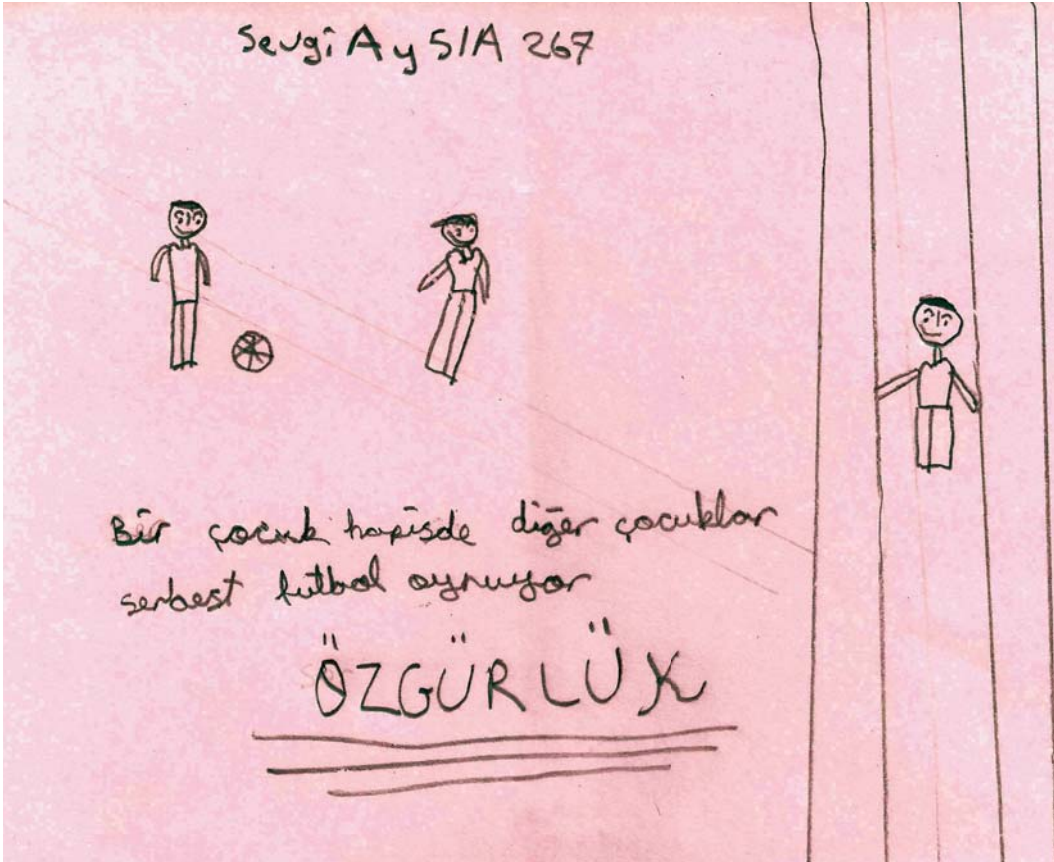 Sevgi Ay 5/A 267
Bir çocuk hapisde diğer çocuklar
serbest futbol oynuyor
ÖZGÜRLÜK